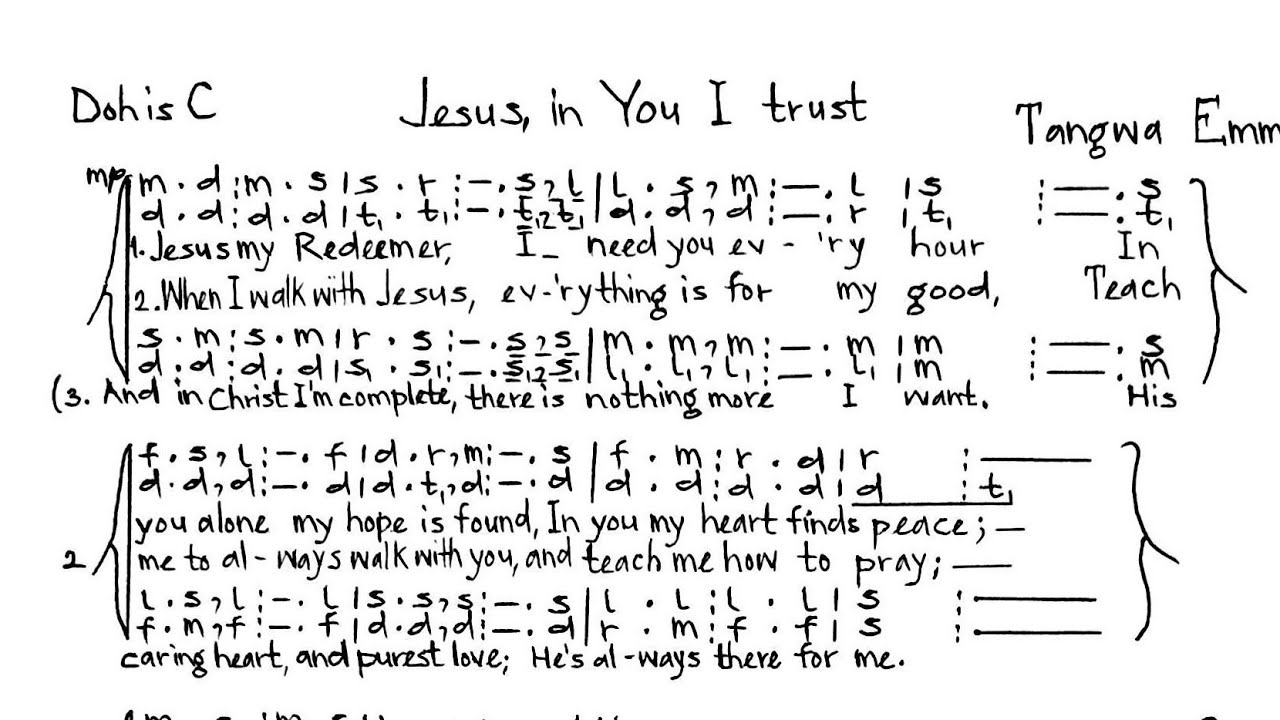 Doh is C
Jesus, in You I trust
Tangwa Emm
mp
m . d : m . s | s . r : – . s , l | l . s , m : – . l | s : — . s
d . d : d . d | t₁ . t₁ : – . t₁ , t₁ | d . d , d : – . r | t₁ : — . t₁
1. Jesus my Redeemer, I_ need you ev - 'ry hour In
2. When I walk with Jesus, ev-'rything is for my good, Teach
s . m : s . m | r . s : – . s , s | m . m , m : – . m | m : — . s
d . d : d . d | s₁ . s₁ : – . s₁ , s₁ | l₁ . l₁ , l₁ : – . l₁ | m : — . m
(3. And in Christ I'm complete, there is nothing more I want. His
f . s , l : – . f | d . r , m : – . s | f . m : r . d | r : —
d . d , d : – . d | d . t₁ , d : – . d | d . d : d . d | d : t₁
you alone my hope is found, In you my heart finds peace; —
2 me to al - ways walk with you, and teach me how to pray; —
l . s , l : – . l | s . s , s : – . s | l . l : l . l | s : —
f . m , f : – . f | d . d , d : – . d | r . m : f . f | s : —
caring heart, and purest love; He's al - ways there for me.